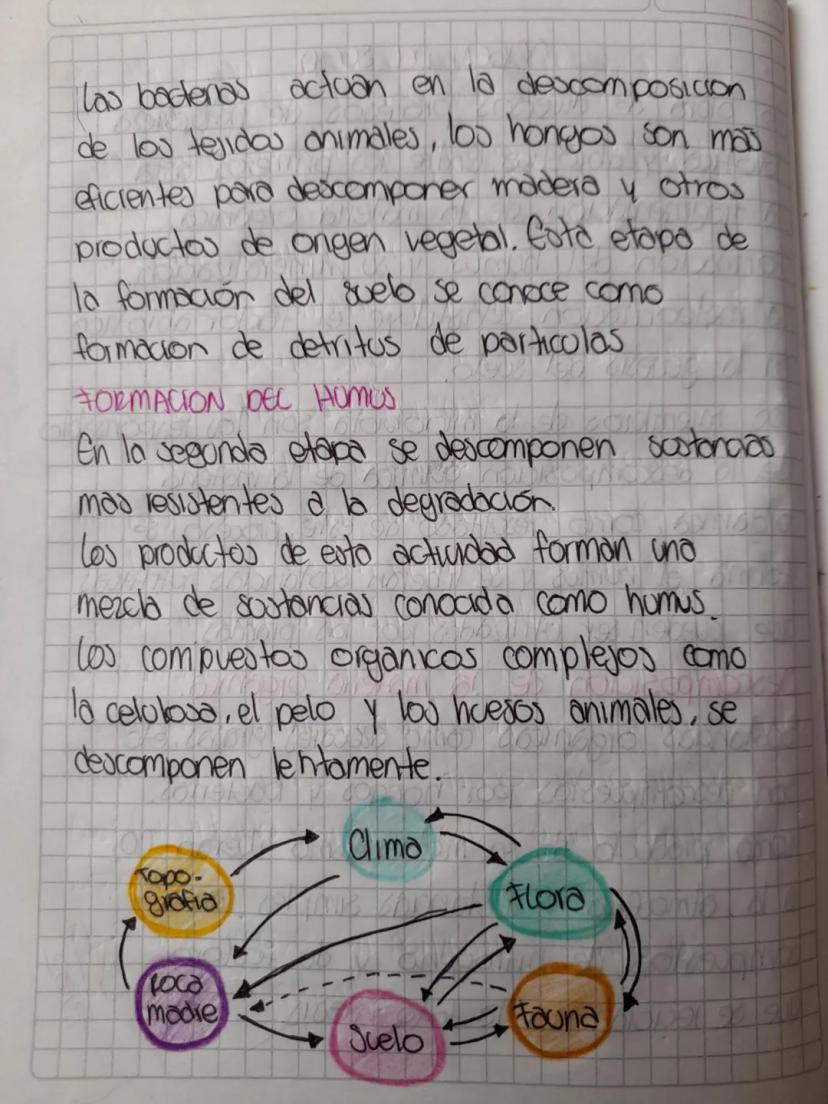 Las bacterias actuan en la descomposicion
de los tejidos animales, los hongos son mas
eficientes para descomponer madera y otros
productos de origen vegetal. Esta etapa de
la formación del suelo se conoce como
formacion de detritus de particulas
FORMACION DEL HUMUS
En la segunda etapa se descomponen sustancias
mas resistentes a la degradación.
Los productos de esta actividad forman una
mezcla de sustancias conocida como humus.
Los compuestos organicos complejos como
la celulosa, el pelo y los huesos animales, se
descomponen lentamente.
Clima
Topo-
grafia
Flora
roca
madre
Suelo
Fauna